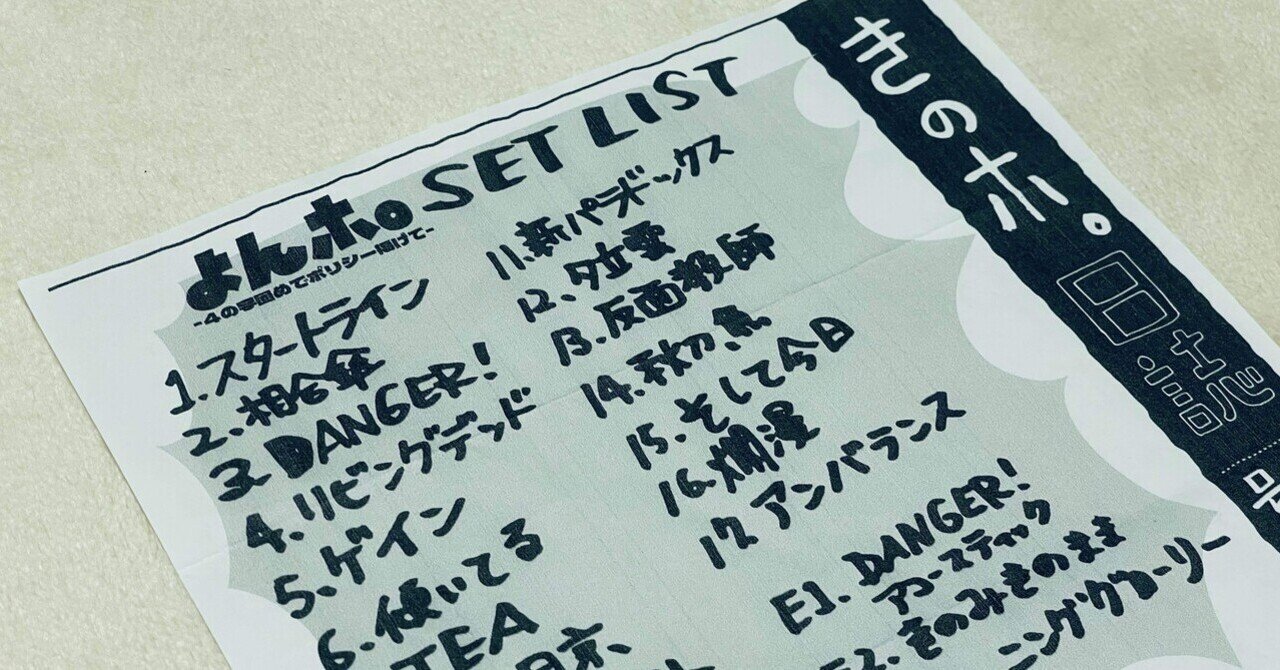 よんホ。SET LIST
-4の字固めでポリシー掲げて-
1.スタートライン
2.相合傘
3.DANGER!
4.リビングデッド
5.ゲイン
6.
TEA
11.新パラドックス
12.夕立雲
13.反面教師
14.秋刀魚
15.そして今日
16.爛漫
17.アンバランス
E1.DANGER!
アコースティック
2.きのみきのまま
ニンググローリー
きのホ。日誌